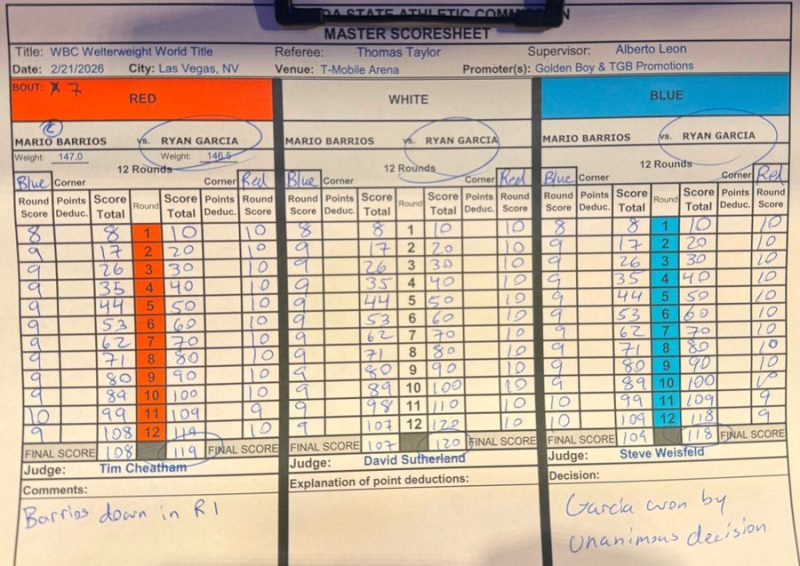 STATE ATHLETIC
MASTER SCORESHEET
Title: WBC Welterweight World Title Referee: Thomas Taylor Supervisor: Alberto Leon
Date: 2/21/2026 City: Las Vegas, NV Venue: T-Mobile Arena Promoter(s): Golden Boy & TGB Promotions
BOUT: 7
RED WHITE BLUE
MARIO BARRIOS vs. RYAN GARCIA MARIO BARRIOS vs. RYAN GARCIA MARIO BARRIOS vs. RYAN GARCIA
Weight: 147.0 Weight: 146.5
12 Rounds 12 Rounds 12 Rounds
Blue Corner Corner Red Blue Corner Corner Red Blue Corner Corner Red
Round Score Points Deduc. Score Total Round Score Total Points Deduc. Round Score Round Score Points Deduc. Score Total Round Score Total Points Deduc. Round Score Round Score Points Deduc. Score Total Round Score Total Points Deduc. Round Score
8 8 1 10 10 8 8 1 10 10 8 8 1 10 10
9 17 2 20 10 9 17 2 20 10 9 17 2 20 10
9 26 3 30 10 9 26 3 30 10 9 26 3 30 10
9 35 4 40 10 9 35 4 40 10 9 35 4 40 10
9 44 5 50 10 9 44 5 50 10 9 44 5 50 10
9 53 6 60 10 9 53 6 60 10 9 53 6 60 10
9 62 7 70 10 9 62 7 70 10 9 62 7 70 10
9 71 8 80 10 9 71 8 80 10 9 71 8 80 10
9 80 9 90 10 9 80 9 90 10 9 80 9 90 10
9 89 10 100 10 9 89 10 100 10 9 89 10 100 10
10 99 11 109 9 9 98 11 110 10 10 99 11 109 9
9 108 12 119 10 9 107 12 120 10 10 109 12 118 9
FINAL SCORE 108 119 FINAL SCORE FINAL SCORE 107 120 FINAL SCORE FINAL SCORE 109 118 FINAL SCORE
Judge: Tim Cheatham Judge: David Sutherland Judge: Steve Weisfeld
Comments: Explanation of point deductions: Decision:
Barrios down in R1
Garcia won by
Unanimous decision